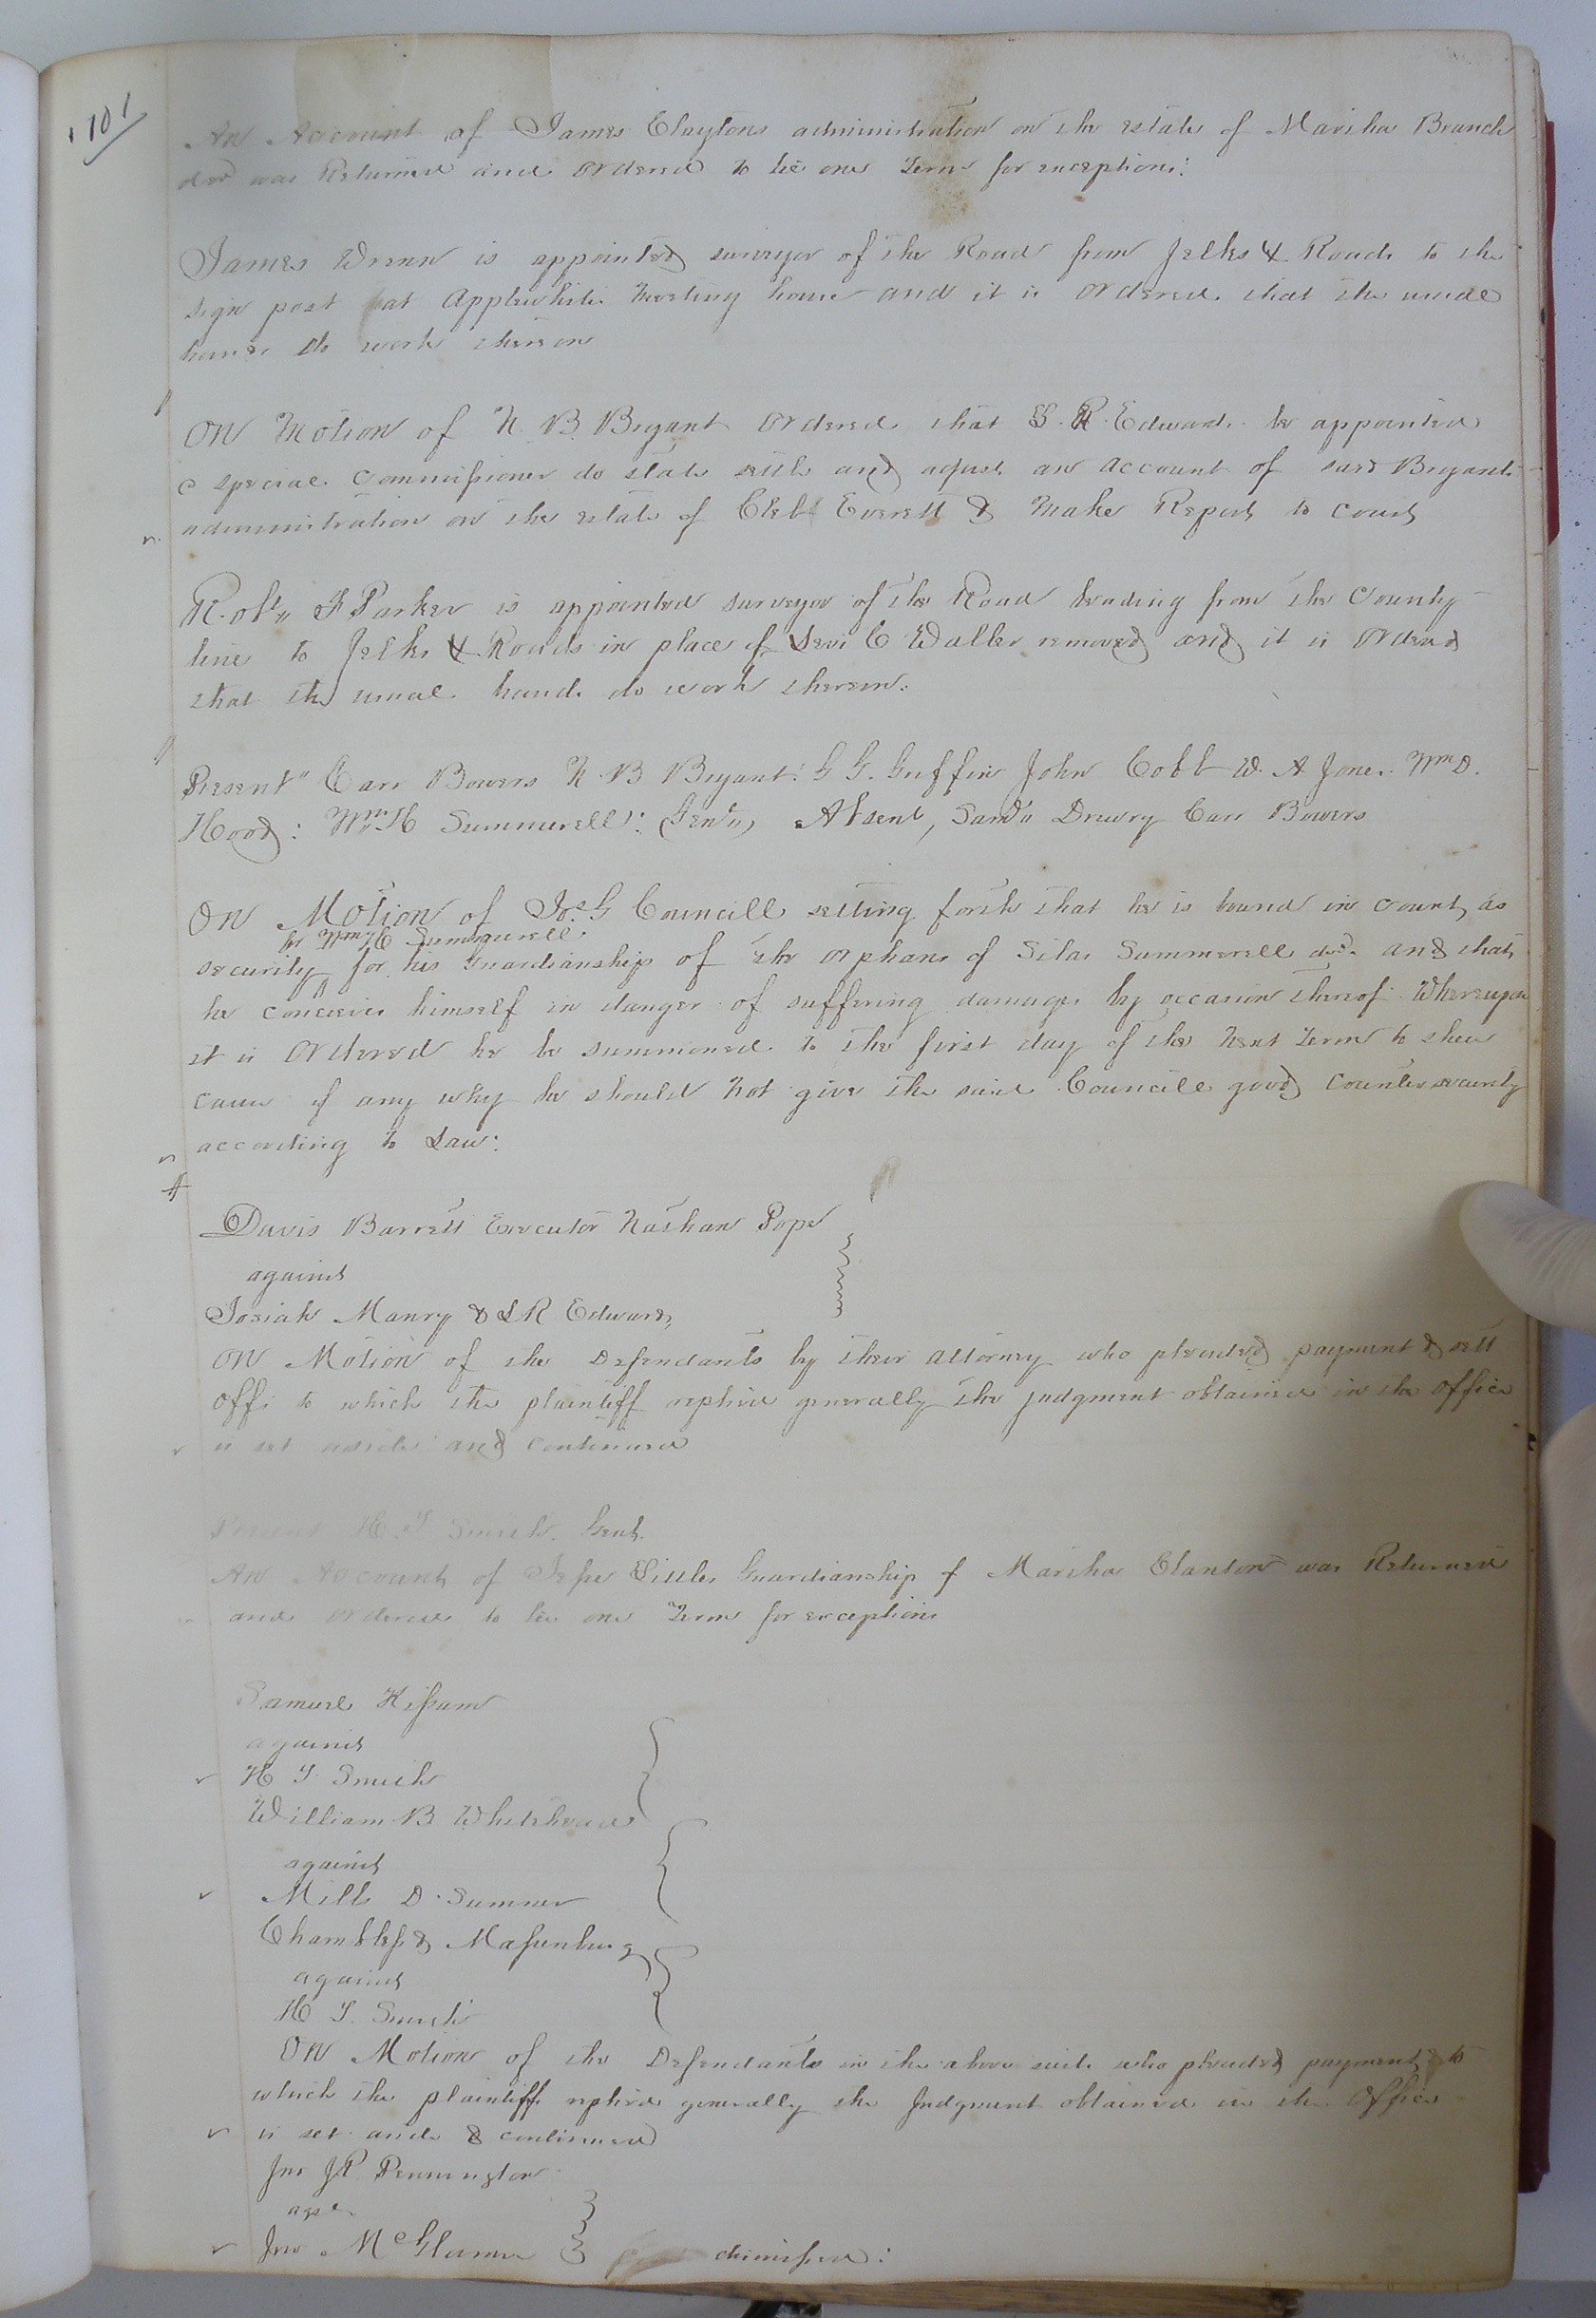 101
An Account of James Claytons administration on the estate of Martha Branch
decd was Returned and ordered to lie one Term for exceptions:
James Wrenn is appointed surveyor of the Road from Jelks X Roads to the
sign post at Applewhite Meeting house and it is ordered that the usual
hands do work thereon
ON Motion of N. B. Bryant ordered that L. R. Edwards be appointed
a special Commissioner do state settle and adjust an account of said Bryants
administration on the estate of Everett & Make Report to court
Robt,, F Parker is appointed surveyor of the Road leading from the County
line to Jelks X Roads in place of Levi C Waller removed and it is ordered
that the usual hands do work thereon:
Present" Carr Bowers N. B Bryant: G G. Griffin John Cobb W. A Jones. Wm D.
Hood: Wm H Summerell: Gent,, Absent, Saml" Drewry Carr Bowers
ON Motion of Jos. G Councill setting forth that he is bound in court as
for Wm H Summerell.
security for his Guardianship of the orphans of Silas Summerell decd. and that
he conceives himself in danger of suffering damage by occasion thereof Whereupon
it is Ordered he be summoned to the first day of the next Term to shew
cause if any why he should Not give the said Councill good counter security
according to Law:
Davis Barrett Executor Nathan Pope
against
Josiah Manry & L R Edwards
ON Motion of the Defendants by their attorney who pleaded payment & sett
offs to which the plaintiff replied generally the judgment obtained in the office
is set aside and continued
Present H. T Smith Gent.
An Account of Jesse Littles Guardianship of Martha Clanton was Returned
and ordered to lie one Term for exceptions
Samuel Kissam
against
H T. Smith
William B Whitehead
against
Mills D. Sumner
Chambless & Massenburg
against
H T. Smith
ON Motion of the Defendants in the above suits who pleaded payment to
which the plaintiffs replied generally the Judgment obtained in the Office
is set aside & continued
Jno J P. Pennington
agst
Jno McGlamre dismissed: